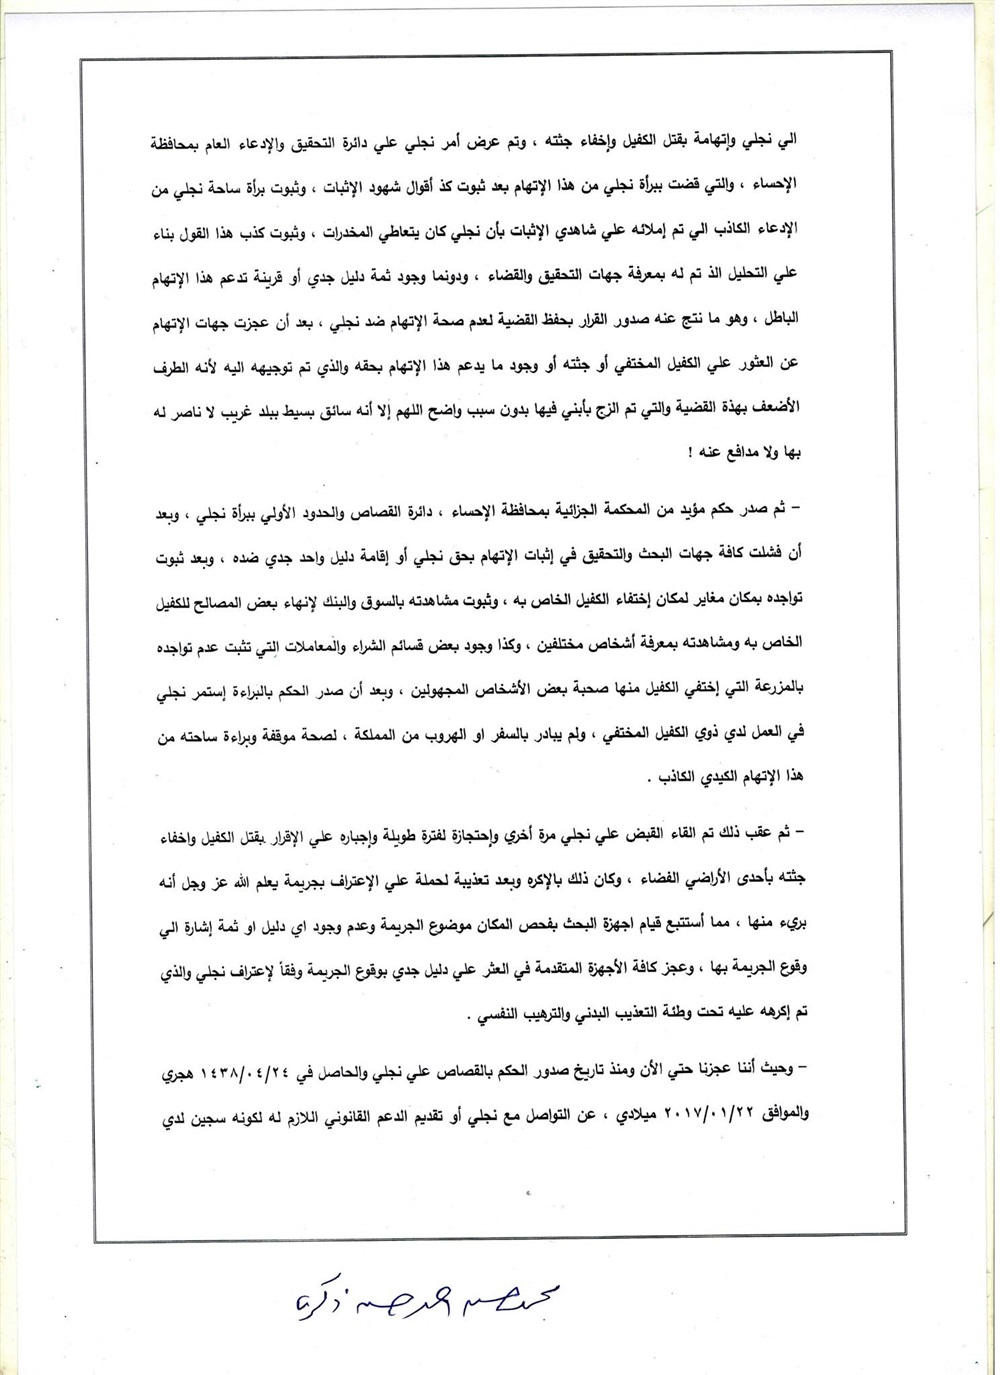 الي نجلي وإتهامة بقتل الكفيل وإخفاء جثته ، وتم عرض أمر نجلي علي دائرة التحقيق والإدعاء العام بمحافظة
الإحساء ، والتي قضت ببرأة نجلي من هذا الإتهام بعد ثبوت كذ أقوال شهود الإثبات ، وثبوت برأة ساحة نجلي من
الإدعاء الكاذب الي تم إملائه علي شاهدي الإثبات بأن نجلي كان يتعاطي المخدرات ، وثبوت كذب هذا القول بناء
علي التحليل الذ تم له بمعرفة جهات التحقيق والقضاء ، ودونما وجود ثمة دليل جدي أو قرينة تدعم هذا الإتهام
الباطل ، وهو ما نتج عنه صدور القرار بحفظ القضية لعدم صحة الإتهام ضد نجلي ، بعد أن عجزت جهات الإتهام
عن العثور علي الكفيل المختفي أو جثته أو وجود ما يدعم هذا الإتهام بحقه والذي تم توجيهه اليه لأنه الطرف
الأضعف بهذة القضية والتي تم الزج بأبني فيها بدون سبب واضح اللهم إلا أنه سائق بسيط ببلد غريب لا ناصر له
بها ولا مدافع عنه !
– ثم صدر حكم مؤيد من المحكمة الجزائية بمحافظة الإحساء ، دائرة القصاص والحدود الأولي ببرأة نجلي ، وبعد
أن فشلت كافة جهات البحث والتحقيق في إثبات الإتهام بحق نجلي أو إقامة دليل واحد جدي ضده ، وبعد ثبوت
تواجده بمكان مغاير لمكان إختفاء الكفيل الخاص به ، وثبوت مشاهدته بالسوق والبنك لإنهاء بعض المصالح للكفيل
الخاص به ومشاهدته بمعرفة أشخاص مختلفين ، وكذا وجود بعض قسائم الشراء والمعاملات التي تثبت عدم تواجده
بالمزرعة التي إختفي الكفيل منها صحبة بعض الأشخاص المجهولين ، وبعد أن صدر الحكم بالبراءة إستمر نجلي
في العمل لدي ذوي الكفيل المختفي ، ولم يبادر بالسفر او الهروب من المملكة ، لصحة موقفة وبراءة ساحته من
هذا الإتهام الكيدي الكاذب .
– ثم عقب ذلك تم القاء القبض علي نجلي مرة أخري وإحتجازة لفترة طويلة وإجباره علي الإقرار بقتل الكفيل واخفاء
جثته بأحدى الأراضي الفضاء ، وكان ذلك بالإكره وبعد تعذيبة لحملة علي الإعتراف بجريمة يعلم الله عز وجل أنه
بريء منها ، مما أستتبع قيام اجهزة البحث بفحص المكان موضوع الجريمة وعدم وجود اي دليل او ثمة إشارة الي
وقوع الجريمة بها ، وعجز كافة الأجهزة المتقدمة في العثر علي دليل جدي بوقوع الجريمة وفقاً لإعتراف نجلي والذي
تم إكرهه عليه تحت وطئة التعذيب البدني والترهيب النفسي .
– وحيث أننا عجزنا حتي الأن ومنذ تاريخ صدور الحكم بالقصاص علي نجلي والحاصل في ١٤٣٨/٠٤/٢٤ هجري
والموافق ٢٠١٧/٠١/٢٢ ميلادي ، عن التواصل مع نجلي أو تقديم الدعم القانوني اللازم له لكونه سجين لدي
حسن زكريا